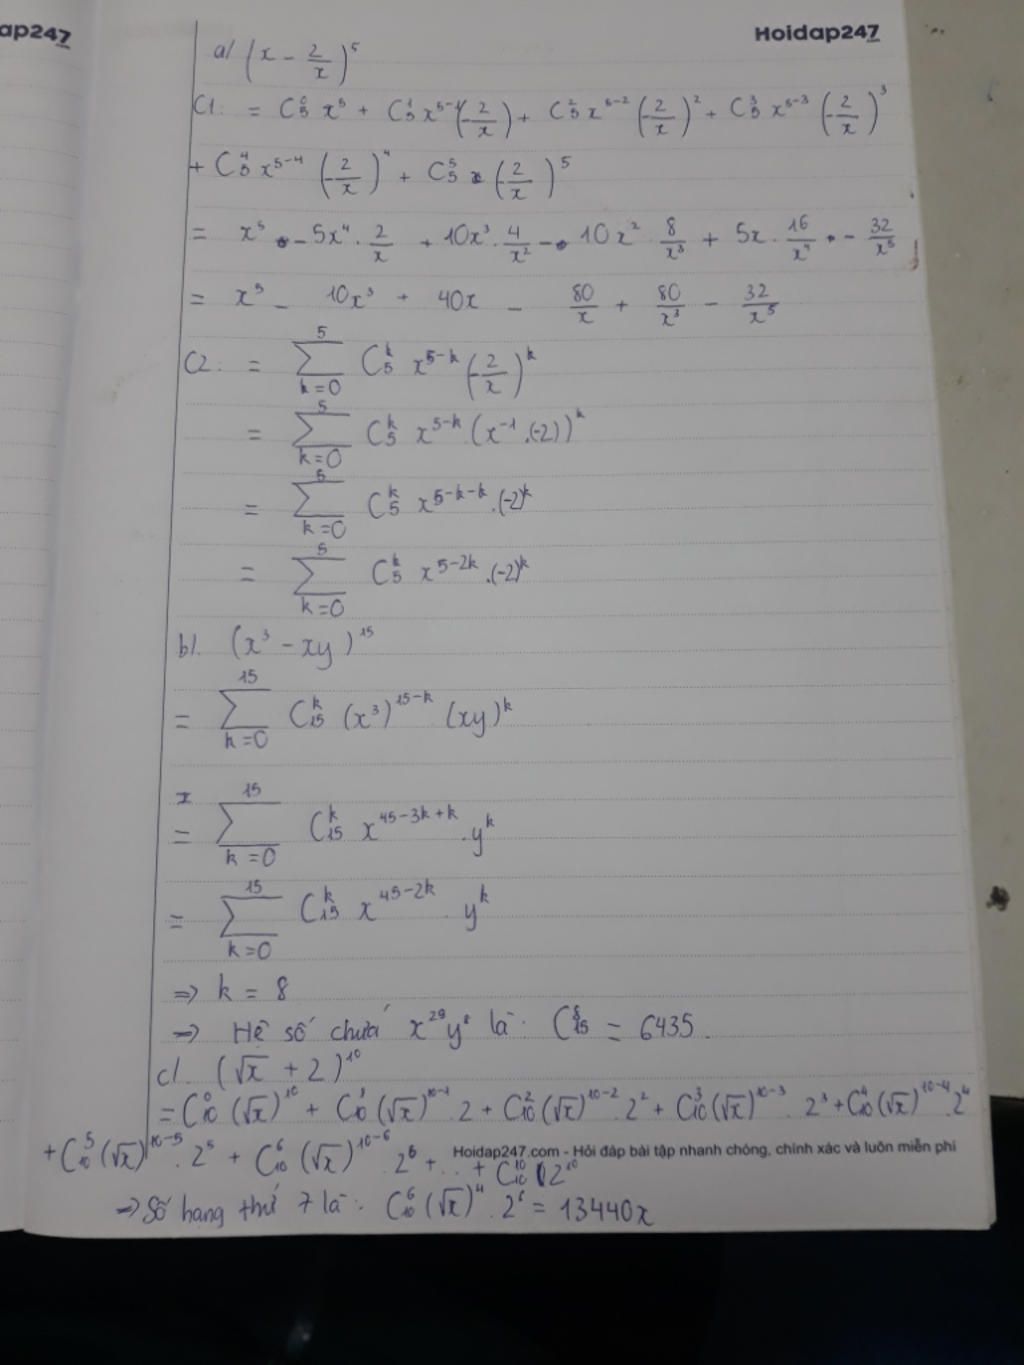 ap247
Hoidap247
a/ (x - 2/x)^5
C1: = C_5^0 x^5 + C_5^1 x^{5-1}(-2/x) + C_5^2 x^{5-2} (-2/x)^2 + C_5^3 x^{5-3} (-2/x)^3
+ C_5^4 x^{5-4} (-2/x)^4 + C_5^5 (-2/x)^5
= x^5 - 5x^4 . 2/x + 10x^3 . 4/x^2 - 10x^2 . 8/x^3 + 5x . 16/x^4 - 32/x^5
= x^5 - 10x^3 + 40x - 80/x + 80/x^3 - 32/x^5
C2: = ∑_{k=0}^{5} C_5^k x^{5-k} (-2/x)^k
= ∑_{k=0}^{5} C_5^k x^{5-k} . (x^{-1} . (-2))^k
= ∑_{k=0}^{5} C_5^k x^{5-k-k} . (-2)^k
= ∑_{k=0}^{5} C_5^k x^{5-2k} . (-2)^k
b/. (x^3 - xy)^{15}
= ∑_{k=0}^{15} C_{15}^k (x^3)^{15-k} (xy)^k
= ∑_{k=0}^{15} C_{15}^k x^{45-3k+k} . y^k
= ∑_{k=0}^{15} C_{15}^k x^{45-2k} y^k
=> k = 8
=> Hệ số chứa x^{29}y^8 là: C_{15}^8 = 6435.
c/. (√x + 2)^{10}
= C_{10}^0 (√x)^{10} + C_{10}^1 (√x)^{10-1} . 2 + C_{10}^2 (√x)^{10-2} . 2^2 + C_{10}^3 (√x)^{10-3} . 2^3 + C_{10}^4 (√x)^{10-4} . 2^4
+ C_{10}^5 (√x)^{10-5} . 2^5 + C_{10}^6 (√x)^{10-6} . 2^6 + ... + C_{10}^{10} 2^{10}
Hoidap247.com - Hỏi đáp bài tập nhanh chóng, chính xác và luôn miễn phí
=> Số hạng thứ 7 là: C_{10}^6 (√x)^4 . 2^6 = 13440x